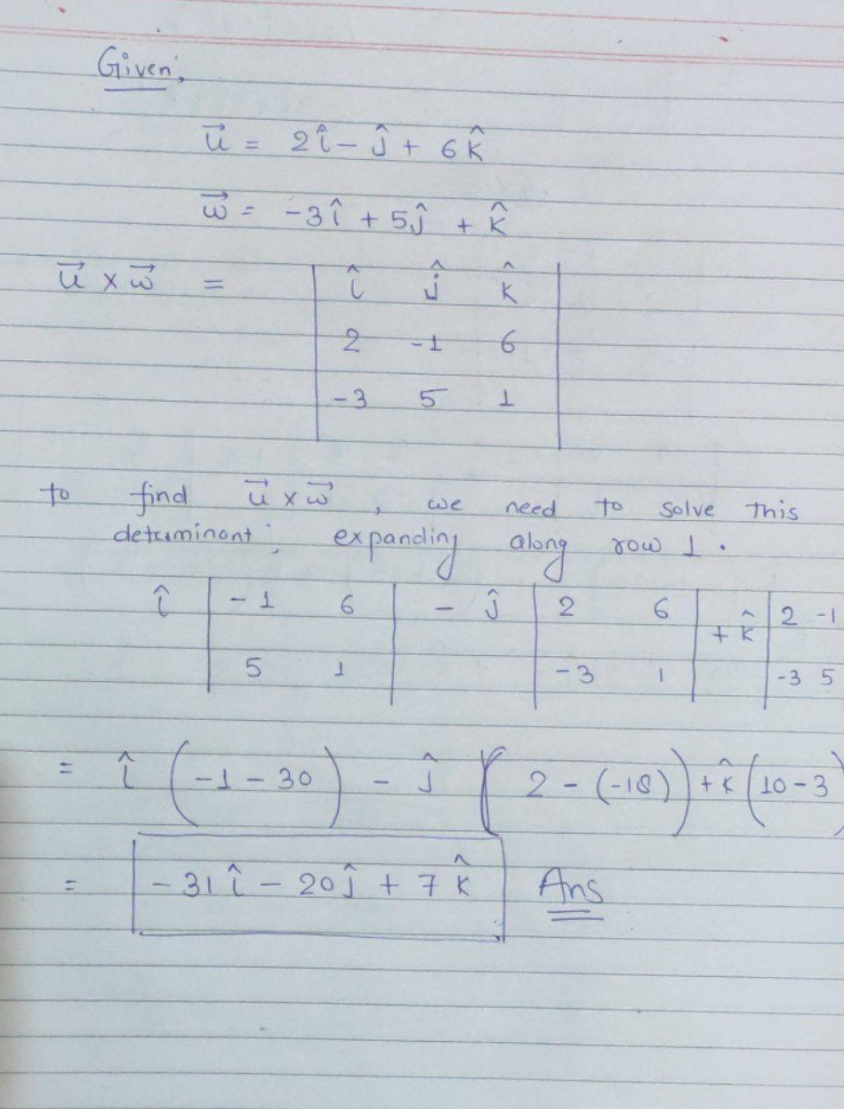 Given,
u⃗ = 2î - ĵ + 6k̂
w⃗ = -3î + 5ĵ + k̂
u⃗ × w⃗ = | î ĵ k̂ |
| 2 -1 6 |
| -3 5 1 |
to find u⃗ × w⃗ , we need to solve this
determinant; expanding along row 1.
î | -1 6 | - ĵ | 2 6 | + k̂ | 2 -1
| 5 1 | | -3 1 | | -3 5
= î (-1 - 30) - ĵ (2 - (-18)) + k̂ (10 - 3)
= -31î - 20ĵ + 7k̂ Ans